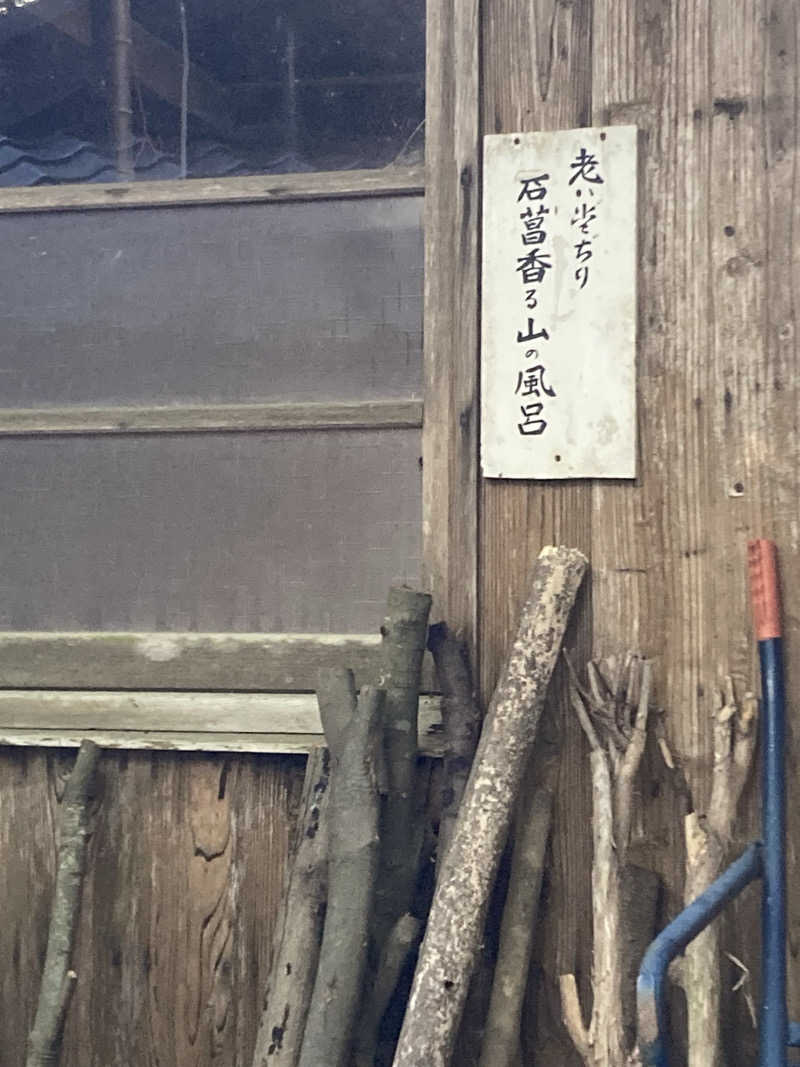 老い ぢり
石菖香る山の風呂